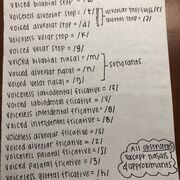 voiced bilabial stop = /b/
voiceless alveolar stop = /t/
voiced alveolar stop = /d/
alveolar tap/flap = /ɾ/
glottal stop = /ʔ/
voiceless velar stop = /k/
voiced velar stop = /g/
voiced bilabial nasal = /m/
voiced alveolar nasal = /n/
voiced velar nasal = /ŋ/
nasals
voiceless labiodental fricative = /f/
voiced labiodental fricative = /v/
voiceless interdental fricative = /θ/
voiced interdental fricative = /ð/
voiceless alveolar fricative = /s/
voiced alveolar fricative = /z/
voiceless palatal fricative = /ʃ/
voiced palatal fricative = /ʒ/
voiceless glottal fricative = /h/
All obstruents
except nasals
& approximants